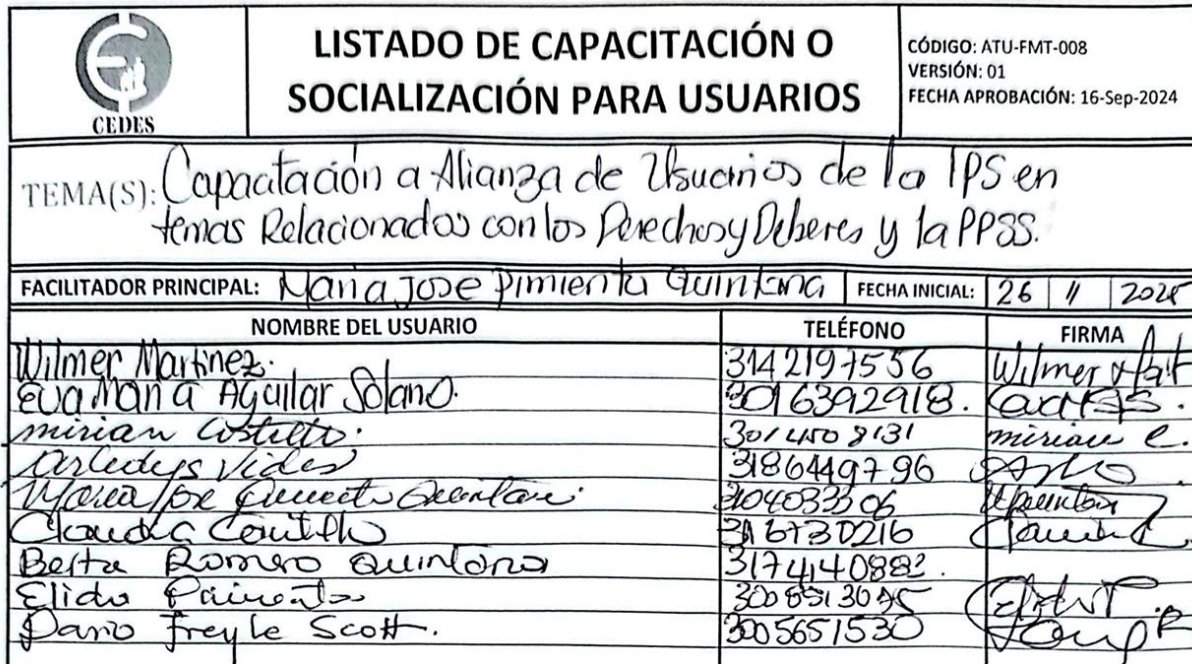 CEDES
LISTADO DE CAPACITACIÓN O
SOCIALIZACIÓN PARA USUARIOS
CÓDIGO: ATU-FMT-008
VERSIÓN: 01
FECHA APROBACIÓN: 16-Sep-2024
TEMA(S): Capacitación a Alianza de Usuarios de la IPS en
temas Relacionados con los Derechos y Deberes y la PPSS.
FACILITADOR PRINCIPAL: Maria Jose Pimienta Quintana FECHA INICIAL: 26 11
NOMBRE DEL USUARIO TELÉFONO FIRMA
Wilmer Martinez. 3142197556 Wilmer
Eva Maria Aguilar Solano. 3016392918.
mirian Castillo. 301 450 8131 mirian C.
Arledys Vides 3186449796
Maria Jose Quintana
Claudia
Berta Romero Quintana 3174140882.
Elida
Dario Freyle Scott. 3005651530